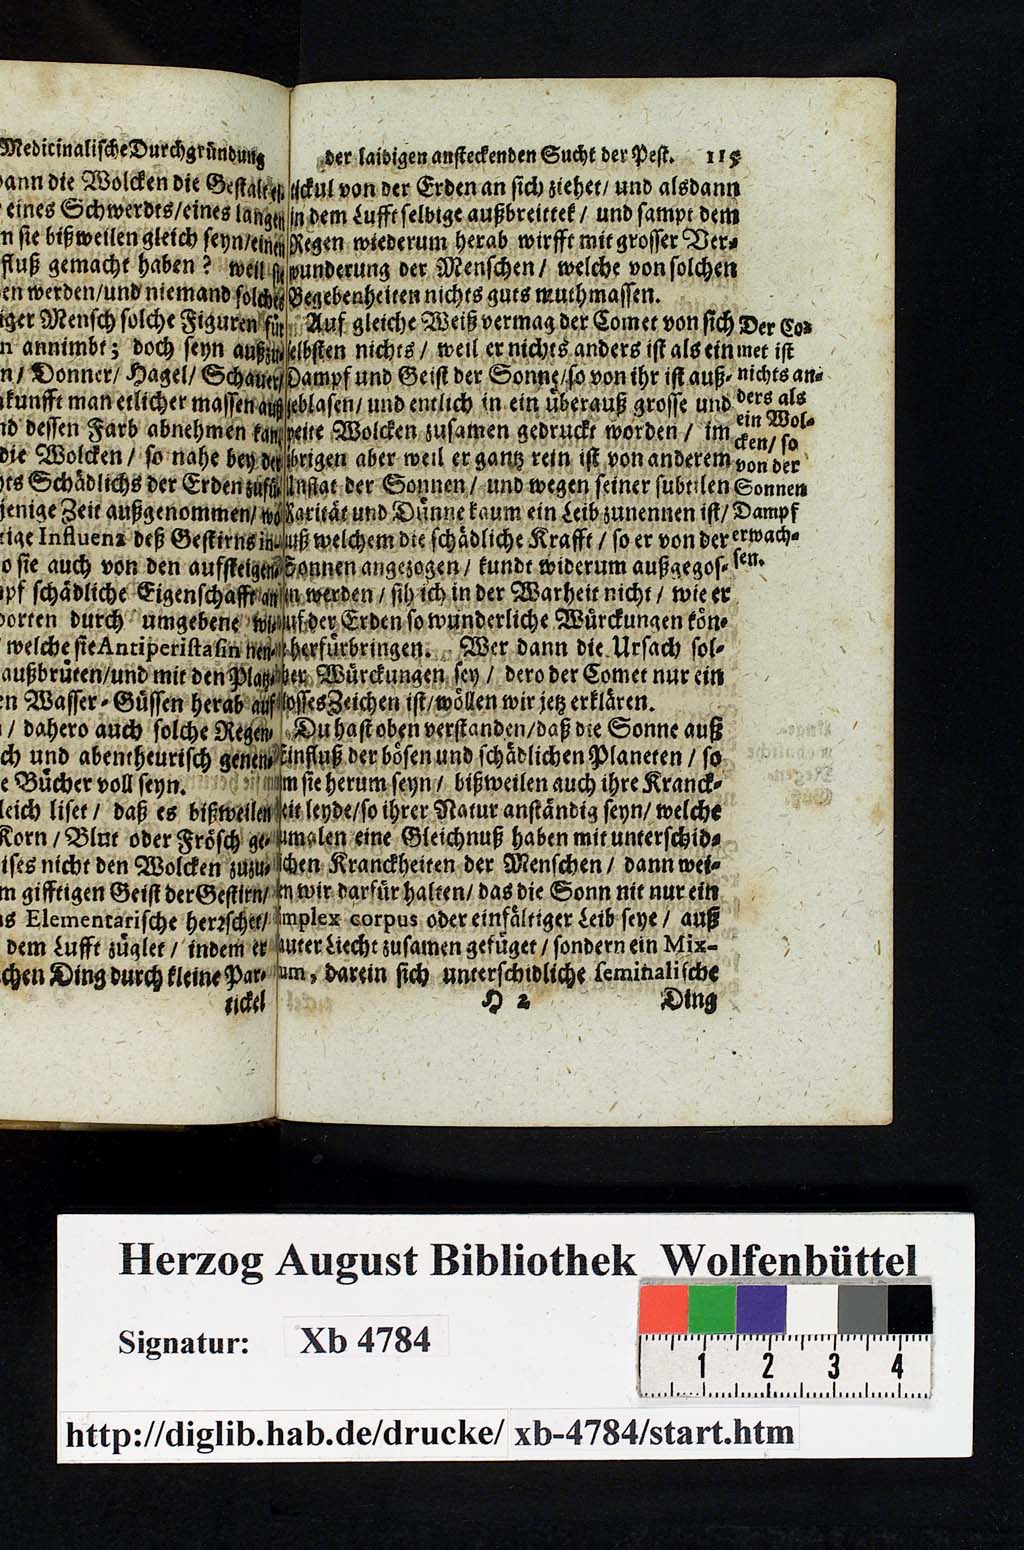 Medicinalische Durchgründung
dann die Wolcken die Gestalt
eines Schwerdts/eines langen
sie bißweilen gleich seyn/einen
fluß gemacht haben? weil sie
en werden/und niemand solches
iger Mensch solche Figuren für
n annimbt; doch seyn
n/ Donner/ Hagel/ Schauer/
kunfft man etlicher massen auß
nd dessen Farb abnehmen kan,
die Wolcken/ so nahe bey der
hts Schädlichs der Erden
jenige Zeit außgenommen/ wo
tige Influenz deß Gestirns in-
o sie auch von den aufsteigen-
mpf schädliche Eigenschafft an
orten durch umgebene
welche sie Antiperistasin nen-
außbrüten/und mit den Platz-
en Wasser-Güssen herab auf
/ dahero auch solche Regen
ch und abentheurisch genen-
e Bücher voll seyn.
leich liset/ daß es bißweilen
Korn/ Blut oder Frösch ge-
ises nicht den Wolcken zuzu-
m gifftigen Geist der Gestirn/
as Elementarische herzschet/
dem Lufft züglet/ indem er
chen Ding durch kleine Par-
tickel
der laidigen ansteckenden Sucht der Pest. 115
tickul von der Erden an sich ziehet/ und alsdann
in dem Lufft selbige außbreittet/ und sampt dem
Regen wiederum herab wirfft mit grosser Ver-
wunderung der Menschen/ welche von solchen
Begebenheiten nichts guts muthmassen.
Auf gleiche Weiß vermag der Comet von sich
selbsten nichts/ weil er nichts anders ist als ein
Dampf und Geist der Sonne/so von ihr ist auß-
geblasen/ und entlich in ein überauß grosse und
weite Wolcken zusamen gedruckt worden/ im
übrigen aber weil er gantz rein ist von anderem
Unflat der Sonnen/ und wegen seiner subtilen
Rarität und Dünne kaum ein Leib zunennen ist/
auß welchem die schädliche Krafft/ so er von der
Sonnen angezogen/ kundt widerum außgegos-
sen werden/ sih ich in der Warheit nicht/ wie er
auf der Erden so wunderliche Würckungen kön-
herfürbringen. Wer dann die Ursach sol-
cher Würckungen sey/ dero der Comet nur ein
blosses Zeichen ist/wöllen wir jetz erklären.
Du hast oben verstanden/daß die Sonne auß
Einfluß der bösen und schädlichen Planeten/ so
um sie herum seyn/ bißweilen auch ihre Kranck-
heit leyde/so ihrer Natur anständig seyn/ welche
zumalen eine Gleichnuß haben mit unterschid-
lichen Kranckheiten der Menschen/ dann wei-
n wir darfür halten/ das die Sonn nit nur ein
implex corpus oder einfältiger Leib seye/ auß
lauter Liecht zusamen gefüget/ sondern ein Mix-
um, darein sich unterschidliche seminalische
H 2 Ding
Der Co-
met ist
nichts an-
ders als
ein Wol-
cken/ so
von der
Sonnen
Dampf
erwach-
sen.
Herzog August Bibliothek Wolfenbüttel
Signatur: Xb 4784
1 2 3 4
http://diglib.hab.de/drucke/ xb-4784/start.htm